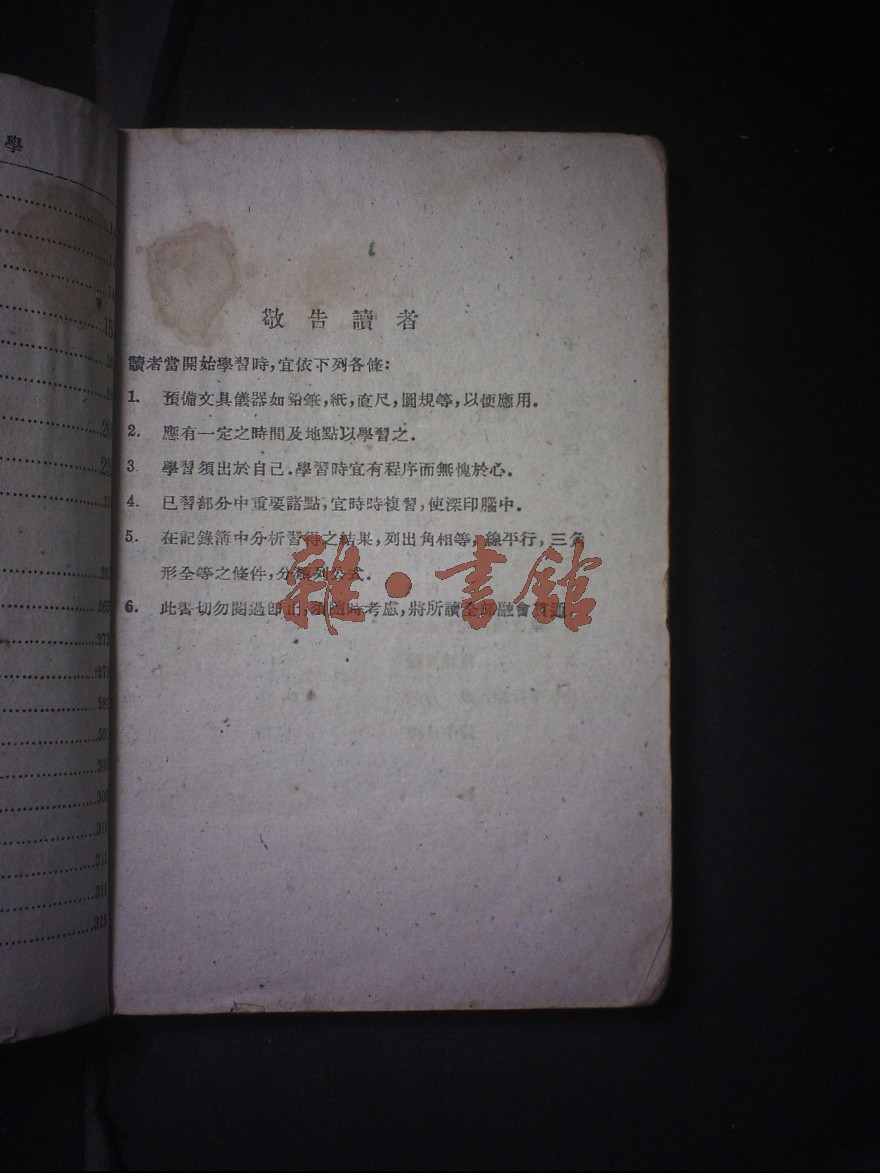 學
153
363
369
273
309
310
311
317
敬告讀者
讀者當開始學習時,宜依下列各條:
1. 預備文具儀器如鉛筆,紙,直尺,圓規等,以便應用.
2. 應有一定之時間及地點以學習之.
3 學習須出於自己.學習時宜有程序而無愧於心.
4. 已習部分中重要諸點,宜時時複習,使深印腦中.
5. 在記錄簿中分析習得之結果,列出角相等,線平行,三角
形全等之條件,分類列公式.
6. 此書切勿閱過即止,須隨時考慮,將所讀全部融會貫通.
雜·書館